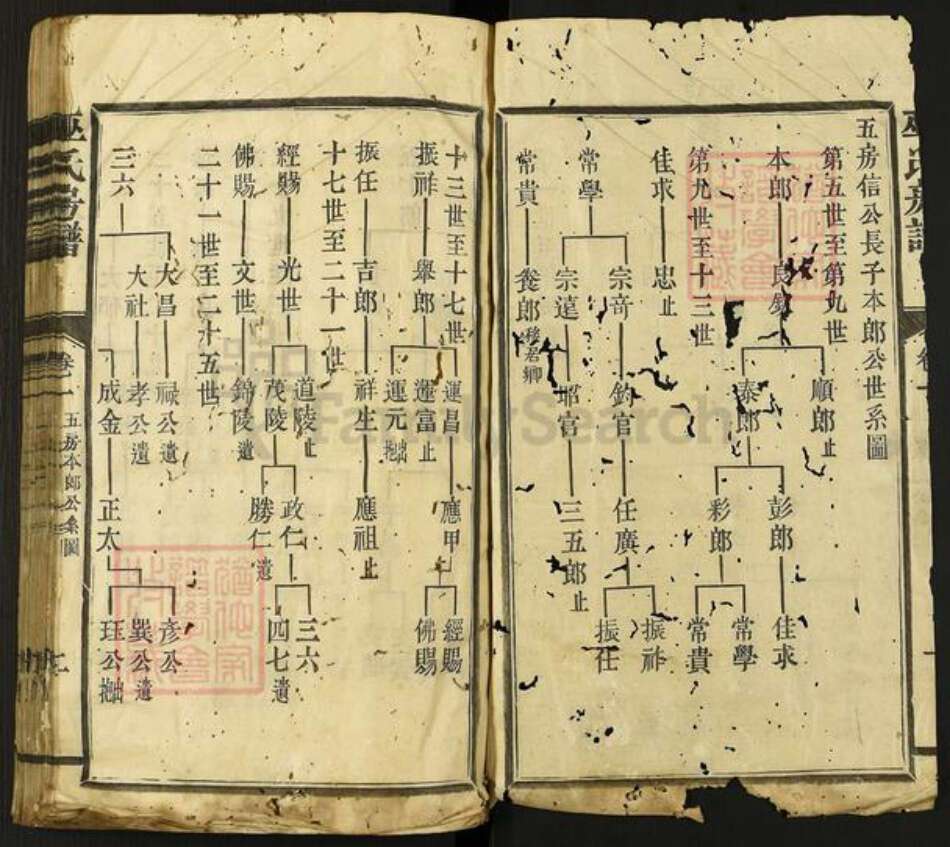 五房信公長子本郎公世系圖
第五世至第九世
本郎 良
順郎止
泰郎
彭郎 佳求
彩郎
常學
常貴
第九世至十三世
佳求 忠止
常學
宗奇 鈞官 任廣
振祚
振任
宗遠 官 三五郎止
常貴 養郎移君鄉
十三世至十七世
振祚 舉郎
運昌 應甲
經賜
佛賜
運富止
運元拙
振任 吉郎 祥生 應祖止
十七世至二十一世
經賜 光世
道陵止
茂陵
政仁
三六
四七遺
勝仁遺
佛賜 文世 錦陵遺
二十一世至二十五世
三六
大昌 祿公遺
大社 孝公遺
成金 正太
彥公
巽公遺
珏公拙
巫氏房譜
卷一
五房本郎公系圖
FamilySearch